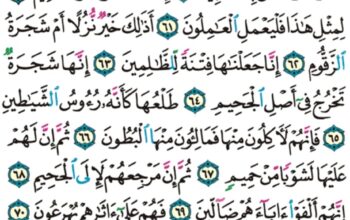 لِمِثْلِ هَٰذَا فَلْيَعْمَلِ ٱلْعَٰمِلُونَ ٦١ أَذَٰلِكَ خَيْرٌ نُّزُلًا أَمْ شَجَرَةُ
ٱلزَّقُّومِ ٦٢ إِنَّا جَعَلْنَٰهَا فِتْنَةً لِّلظَّٰلِمِينَ ٦٣ إِنَّهَا شَجَرَةٌ
تَخْرُجُ فِىٓ أَصْلِ ٱلْجَحِيمِ ٦٤ طَلْعُهَا كَأَنَّهُۥ رُءُوسُ ٱلشَّيَٰطِينِ
٦٥ فَإِنَّهُمْ لَءَاكِلُونَ مِنْهَا فَمَالِـُٔونَ مِنْهَا ٱلْبُطُونَ ٦٦ ثُمَّ إِنَّ لَهُمْ
عَلَيْهَا لَشَوْبًا مِّنْ حَمِيمٍ ٦٧ ثُمَّ إِنَّ مَرْجِعَهُمْ لَإِلَى ٱلْجَحِيمِ ٦٨
إِنَّهُمْ أَلْفَوْا۟ ءَابَآءَهُمْ ضَآلِّينَ ٦٩ فَهُمْ عَلَىٰٓ ءَاثَٰرِهِمْ يُهْرَعُونَ ٧٠